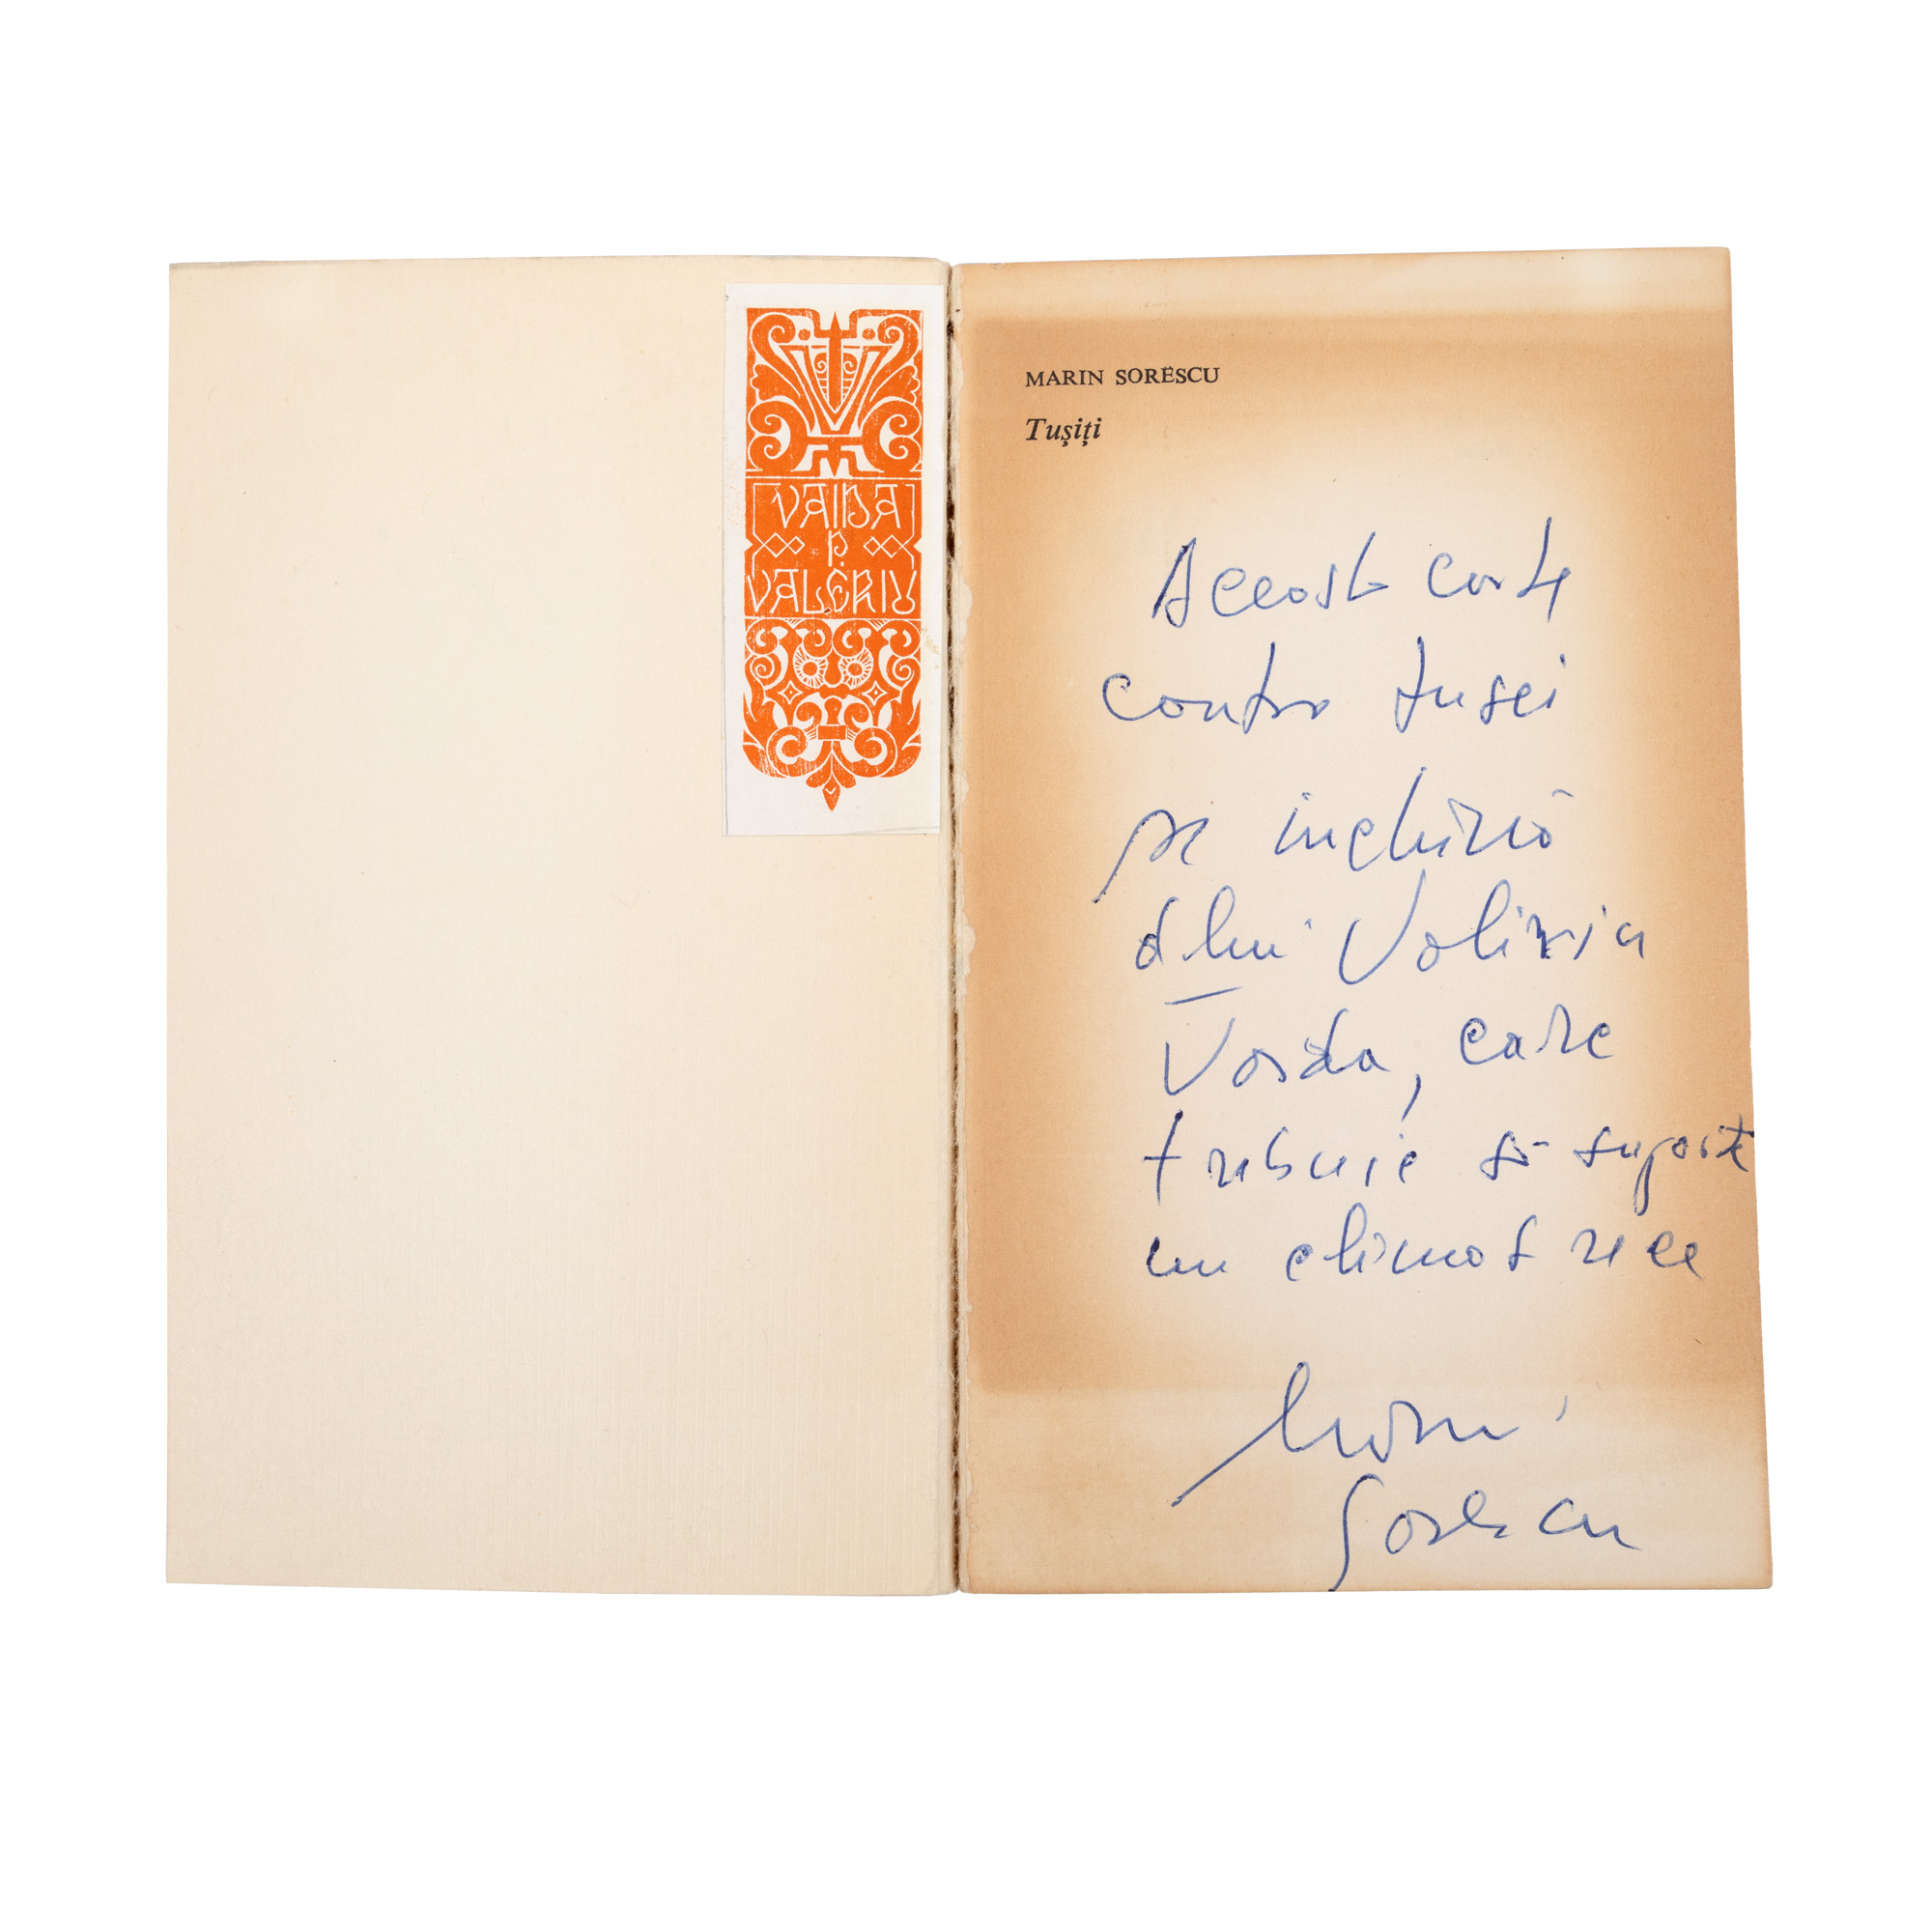 VAIDA
P.
VALERIU
MARIN SORESCU
Tușiți
Această carte
contra tusei
se închiriă
dlui Valeriu
Vaida, care
trebuie să suporte
un climat rece
Marin
Sorescu